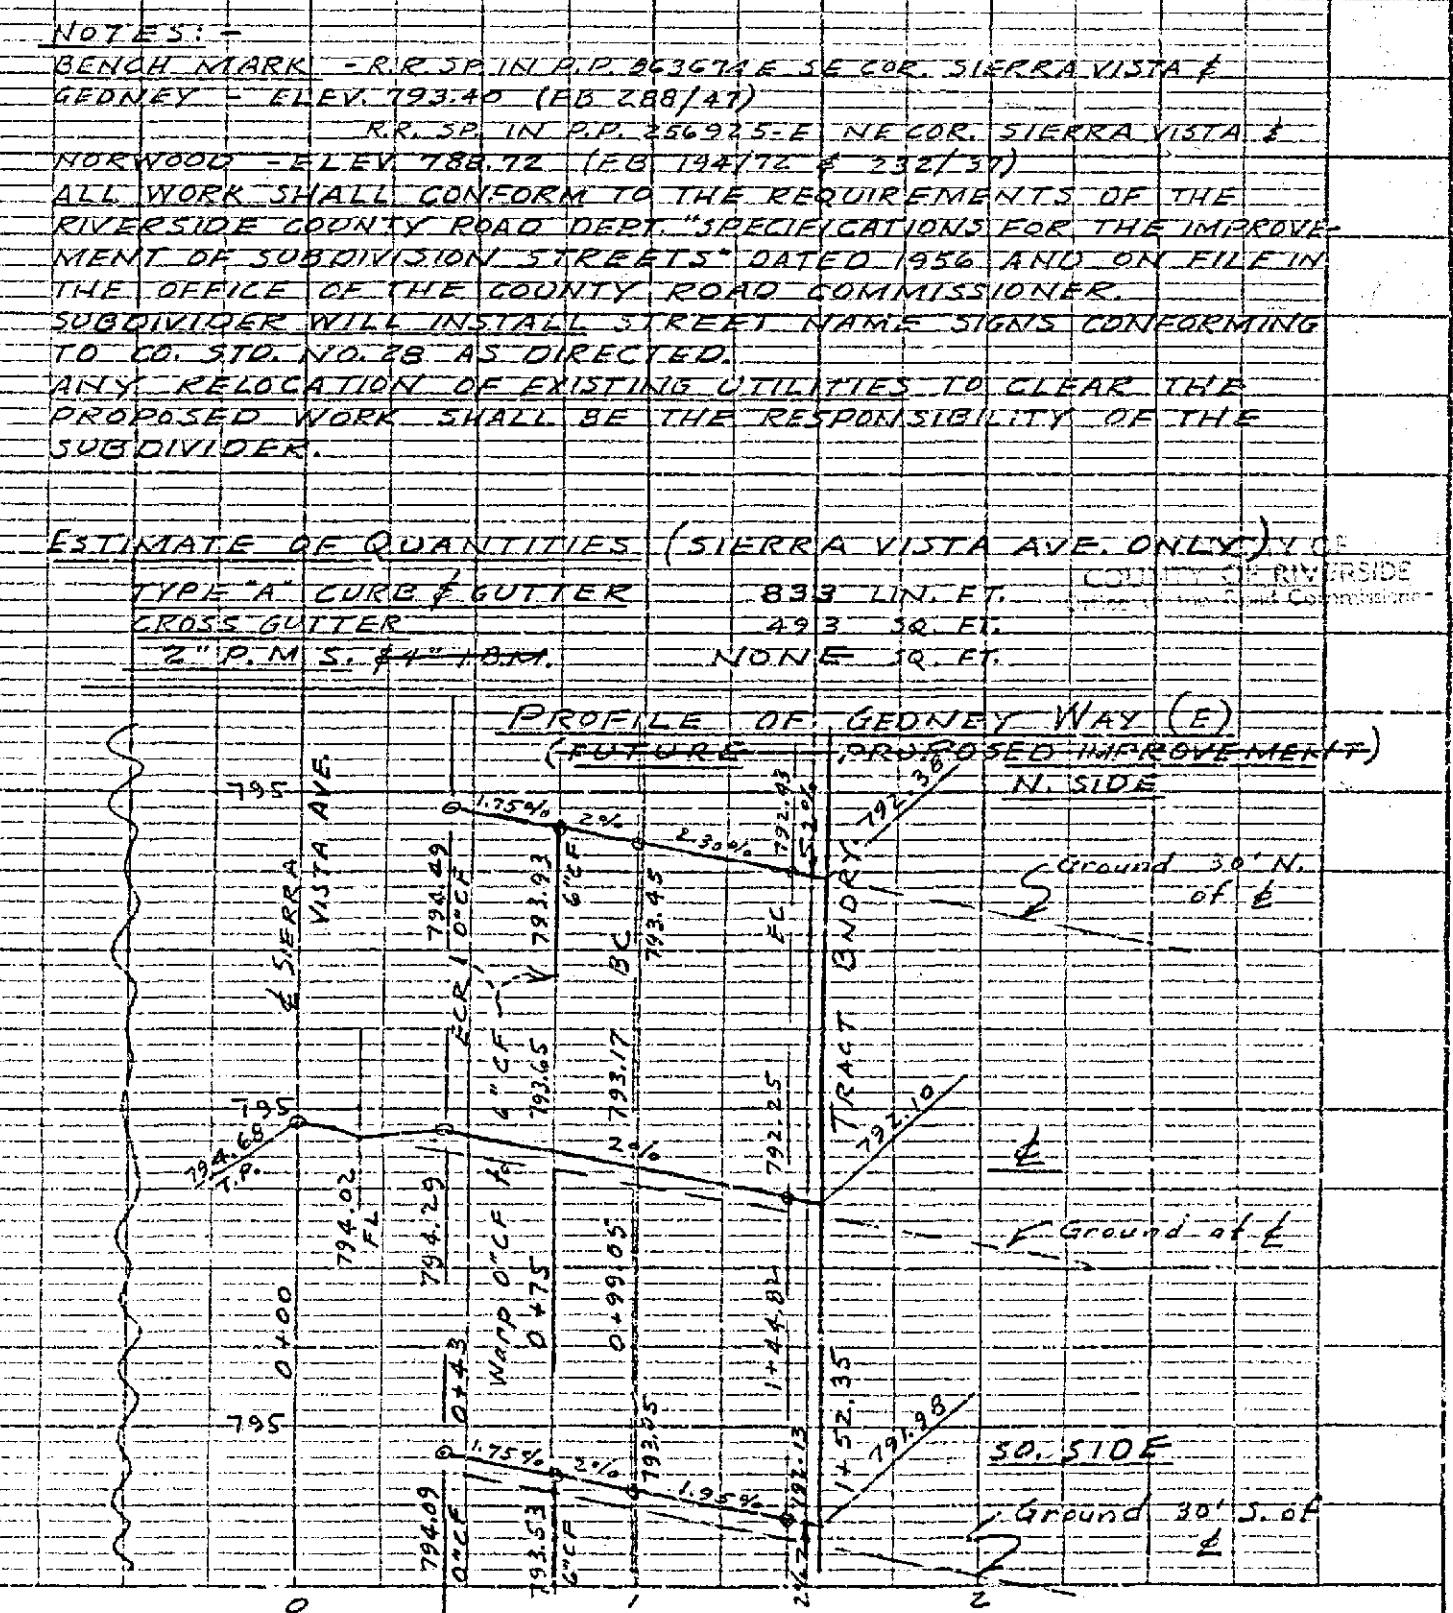 NOTES: -
BENCH MARK - R.R. SP. IN P.P. 863674E SE COR. SIERRA VISTA &
GEDNEY - ELEV. 793.40 (FB 288/47)
R.R. SP. IN P.P. 256925-E NE COR. SIERRA VISTA &
NORWOOD - ELEV. 788.72 (FB 194/72 & 232/37)
ALL WORK SHALL CONFORM TO THE REQUIREMENTS OF THE
RIVERSIDE COUNTY ROAD DEPT. "SPECIFICATIONS FOR THE IMPROVE-
MENT OF SUBDIVISION STREETS" DATED 1956 AND ON FILE IN
THE OFFICE OF THE COUNTY ROAD COMMISSIONER.
SUBDIVIDER WILL INSTALL STREET NAME SIGNS CONFORMING
TO CO. STD. NO. 28 AS DIRECTED.
ANY RELOCATION OF EXISTING UTILITIES TO CLEAR THE
PROPOSED WORK SHALL BE THE RESPONSIBILITY OF THE
SUBDIVIDER.
ESTIMATE OF QUANTITIES (SIERRA VISTA AVE. ONLY)
COUNTY OF RIVERSIDE
Road Commissioner
TYPE "A" CURB & GUTTER 833 LIN. FT.
CROSS GUTTER 493 SQ. FT.
2" P.M.S. & 4" I.B.M. NONE SQ. FT.
PROFILE OF GEDNEY WAY (E)
(FUTURE PROPOSED IMPROVEMENT)
N. SIDE
795
℄ SIERRA
VISTA AVE.
1.75%
2%
2.30%
792.43
792.38
794.49
0"CF
ECR
793.93
6"CF
BC
793.45
EC
TRACT BNDRY.
Ground 30' N.
of ℄
795
794.68
T.P.
794.02
FL
794.29
Warp 0"CF to 6"CF
793.65
793.17
2%
792.25
792.10
℄
Ground at ℄
0+00
0+43
0+75
0+99.05
1+44.82
1+52.35
795
1.75%
2%
1.95%
794.09
0"CF
793.53
6"CF
793.05
792.13
791.98
SO. SIDE
Ground 30' S. of
℄
0
1
2